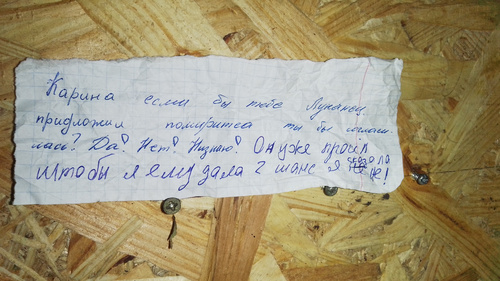 Карина если бы тебе Луканец
придложил помиритса ты бы согласи-
лась? Да? Нет? Низнаю? Он уже просил
штобы я ему дала 2 шанс я сказала
не!